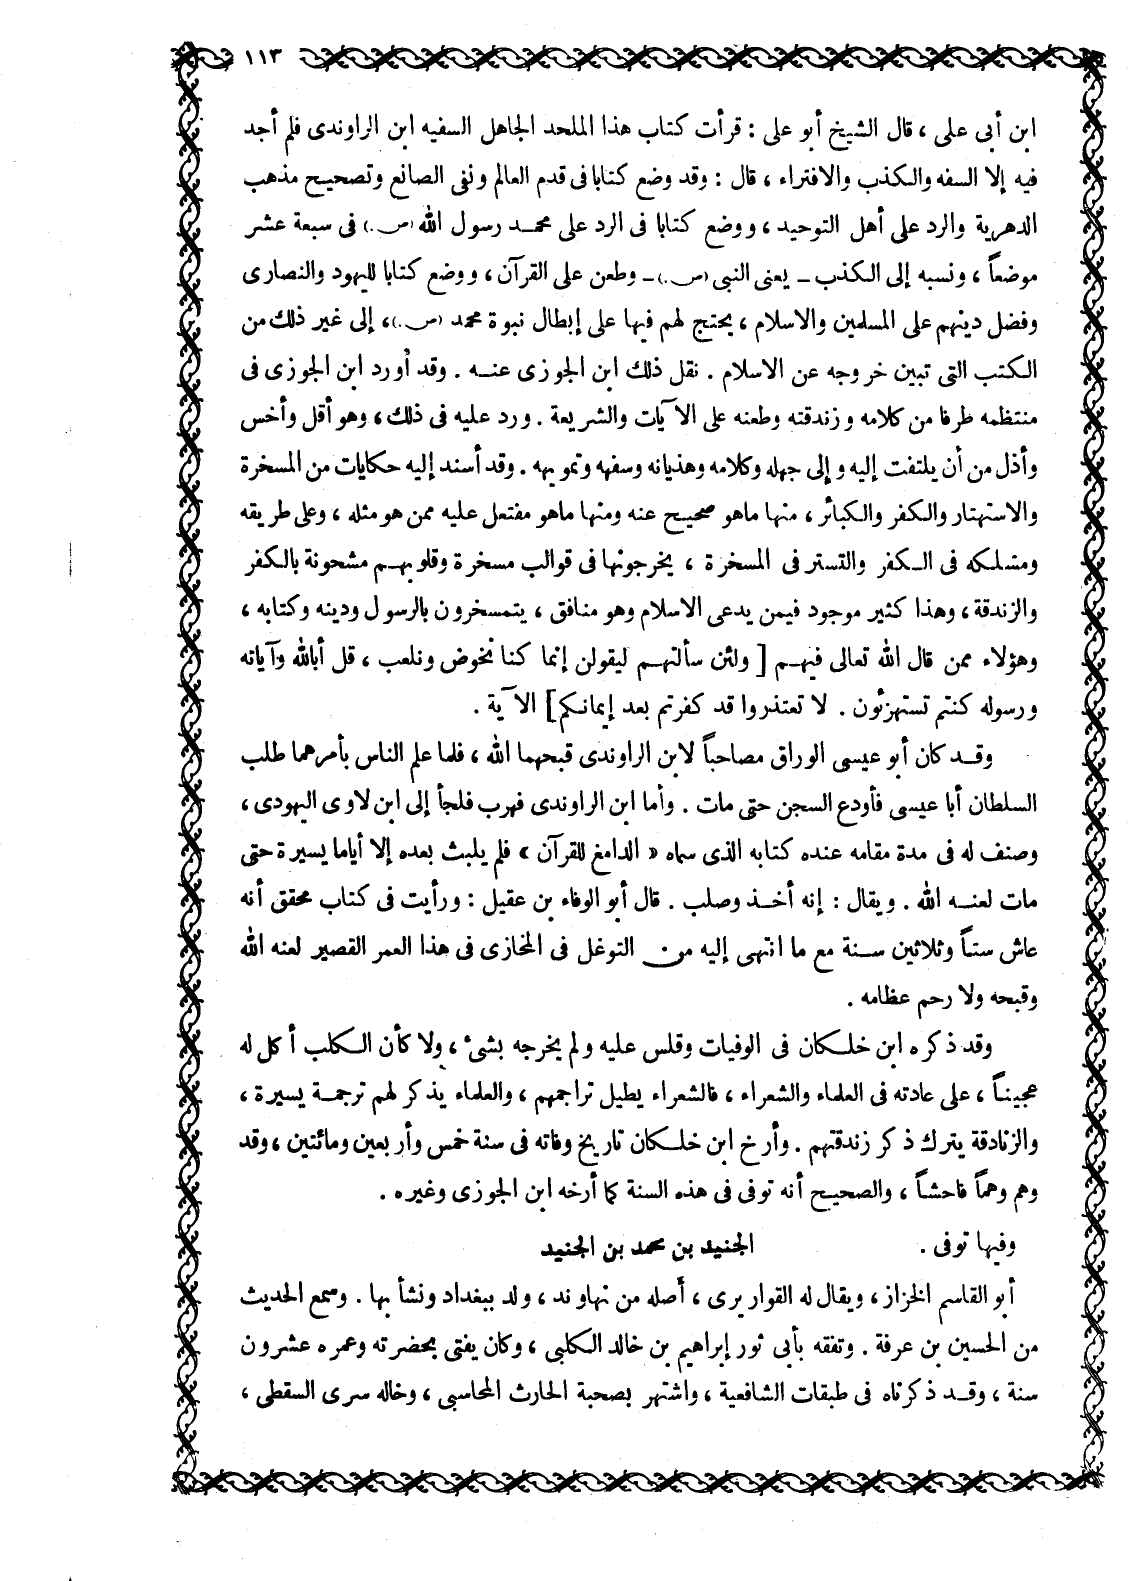 ١١٣
ابن أبى على ، قال الشيخ أبو على : قرأت كتاب هذا الملحد الجاهل السفيه ابن الراوندى فلم أجد
فيه إلا السفه والكذب والافتراء ، قال : وقد وضع كتابا فى قدم العالم ونفى الصانع وتصحيح مذهب
الدهرية والرد على أهل التوحيد ، ووضع كتابا فى الرد على محمد رسول الله (ص.) فى سبعة عشر
موضعاً ، ونسبه إلى الكذب ـ يعنى النبى (ص.) ـ وطعن على القرآن ، ووضع كتابا لليهود والنصارى
وفضل دينهم على المسلمين والاسلام ، يحتج لهم فيها على إبطال نبوة محمد (ص.)، إلى غير ذلك من
الكتب التى تبين خروجه عن الاسلام . نقل ذلك ابن الجوزى عنه . وقد أورد ابن الجوزى فى
منتظمه طرفا من كلامه وزندقته وطعنه على الآيات والشريعة . ورد عليه فى ذلك ، وهو أقل وأخس
وأذل من أن يلتفت إليه وإلى جهله وكلامه وهذيانه وسفهه وتمويهه . وقد أسند إليه حكايات من المسخرة
والاستهتار والكفر والكبائر ، منها ماهو صحيح عنه ومنها ماهو مفتعل عليه ممن هو مثله ، وعلى طريقه
ومسلكه فى الكفر والتستر فى المسخرة ، يخرجونها فى قوالب مسخرة وقلوبهم مشحونة بالكفر
والزندقة ، وهذا كثير موجود فيمن يدعى الاسلام وهو منافق ، يتمسخرون بالرسول ودينه وكتابه ،
وهؤلاء ممن قال الله تعالى فيهم [ ولئن سألتهم ليقولن إنما كنا نخوض ونلعب ، قل أبالله وآياته
ورسوله كنتم تستهزئون . لا تعتذروا قد كفرتم بعد إيمانكم] الآية .
وقد كان أبو عيسى الوراق مصاحباً لابن الراوندى قبحهما الله ، فلما علم الناس بأمرهما طلب
السلطان أبا عيسى فأودع السجن حتى مات . وأما ابن الراوندى فهرب فلجأ إلى ابن لاوى اليهودى ،
وصنف له فى مدة مقامه عنده كتابه الذى سماه « الدامغ للقرآن » فلم يلبث بعده إلا أياما يسيرة حتى
مات لعنه الله . ويقال : إنه أخذ وصلب . قال أبو الوفاء بن عقيل : ورأيت فى كتاب محقق أنه
عاش ستاً وثلاثين سنة مع ما انتهى إليه من التوغل فى المخازى فى هذا العمر القصير لعنه الله
وقبحه ولا رحم عظامه .
وقد ذكره ابن خلكان فى الوفيات وقلس عليه ولم يخرجه بشئ ، ولا كأن الكلب أكل له
عجيناً ، على عادته فى العلماء والشعراء ، فالشعراء يطيل تراجمهم ، والعلماء يذكر لهم ترجمة يسيرة ،
والزنادقة يترك ذكر زندقتهم . وأرخ ابن خلكان تاريخ وفاته فى سنة خمس وأربعين ومائتين ، وقد
وهم وهماً فاحشاً ، والصحيح أنه توفى فى هذه السنة كما أرخه ابن الجوزى وغيره .
وفيها توفى . الجنيد بن محمد بن الجنيد
أبو القاسم الخزاز ، ويقال له القواريرى ، أصله من نهاوند ، ولد ببغداد ونشأ بها . وسمع الحديث
من الحسين بن عرفة . وتفقه بأبى ثور إبراهيم بن خالد الكلبى ، وكان يفتى بحضرته وعمره عشرون
سنة ، وقد ذكرناه فى طبقات الشافعية ، واشتهر بصحبة الحارث المحاسبى ، وخاله سرى السقطى ،